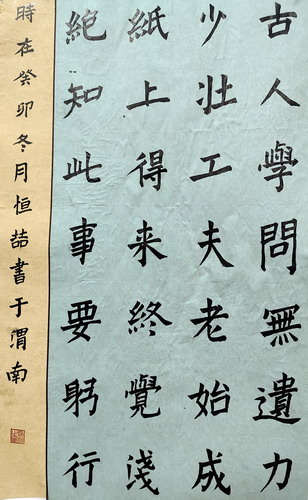 古人學問無遺力
少壯工夫老始成
紙上得来終覺淺
絕知此事要躬行
時在癸卯冬月恒喆書于渭南